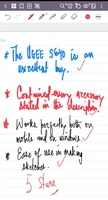 * The UGEE S640 is an
excellent buy.
* Contained every accessory
stated in the description
* Works perfectly both on
mobile and on windows.
* Ease of use in making
sketches.
5 Stars